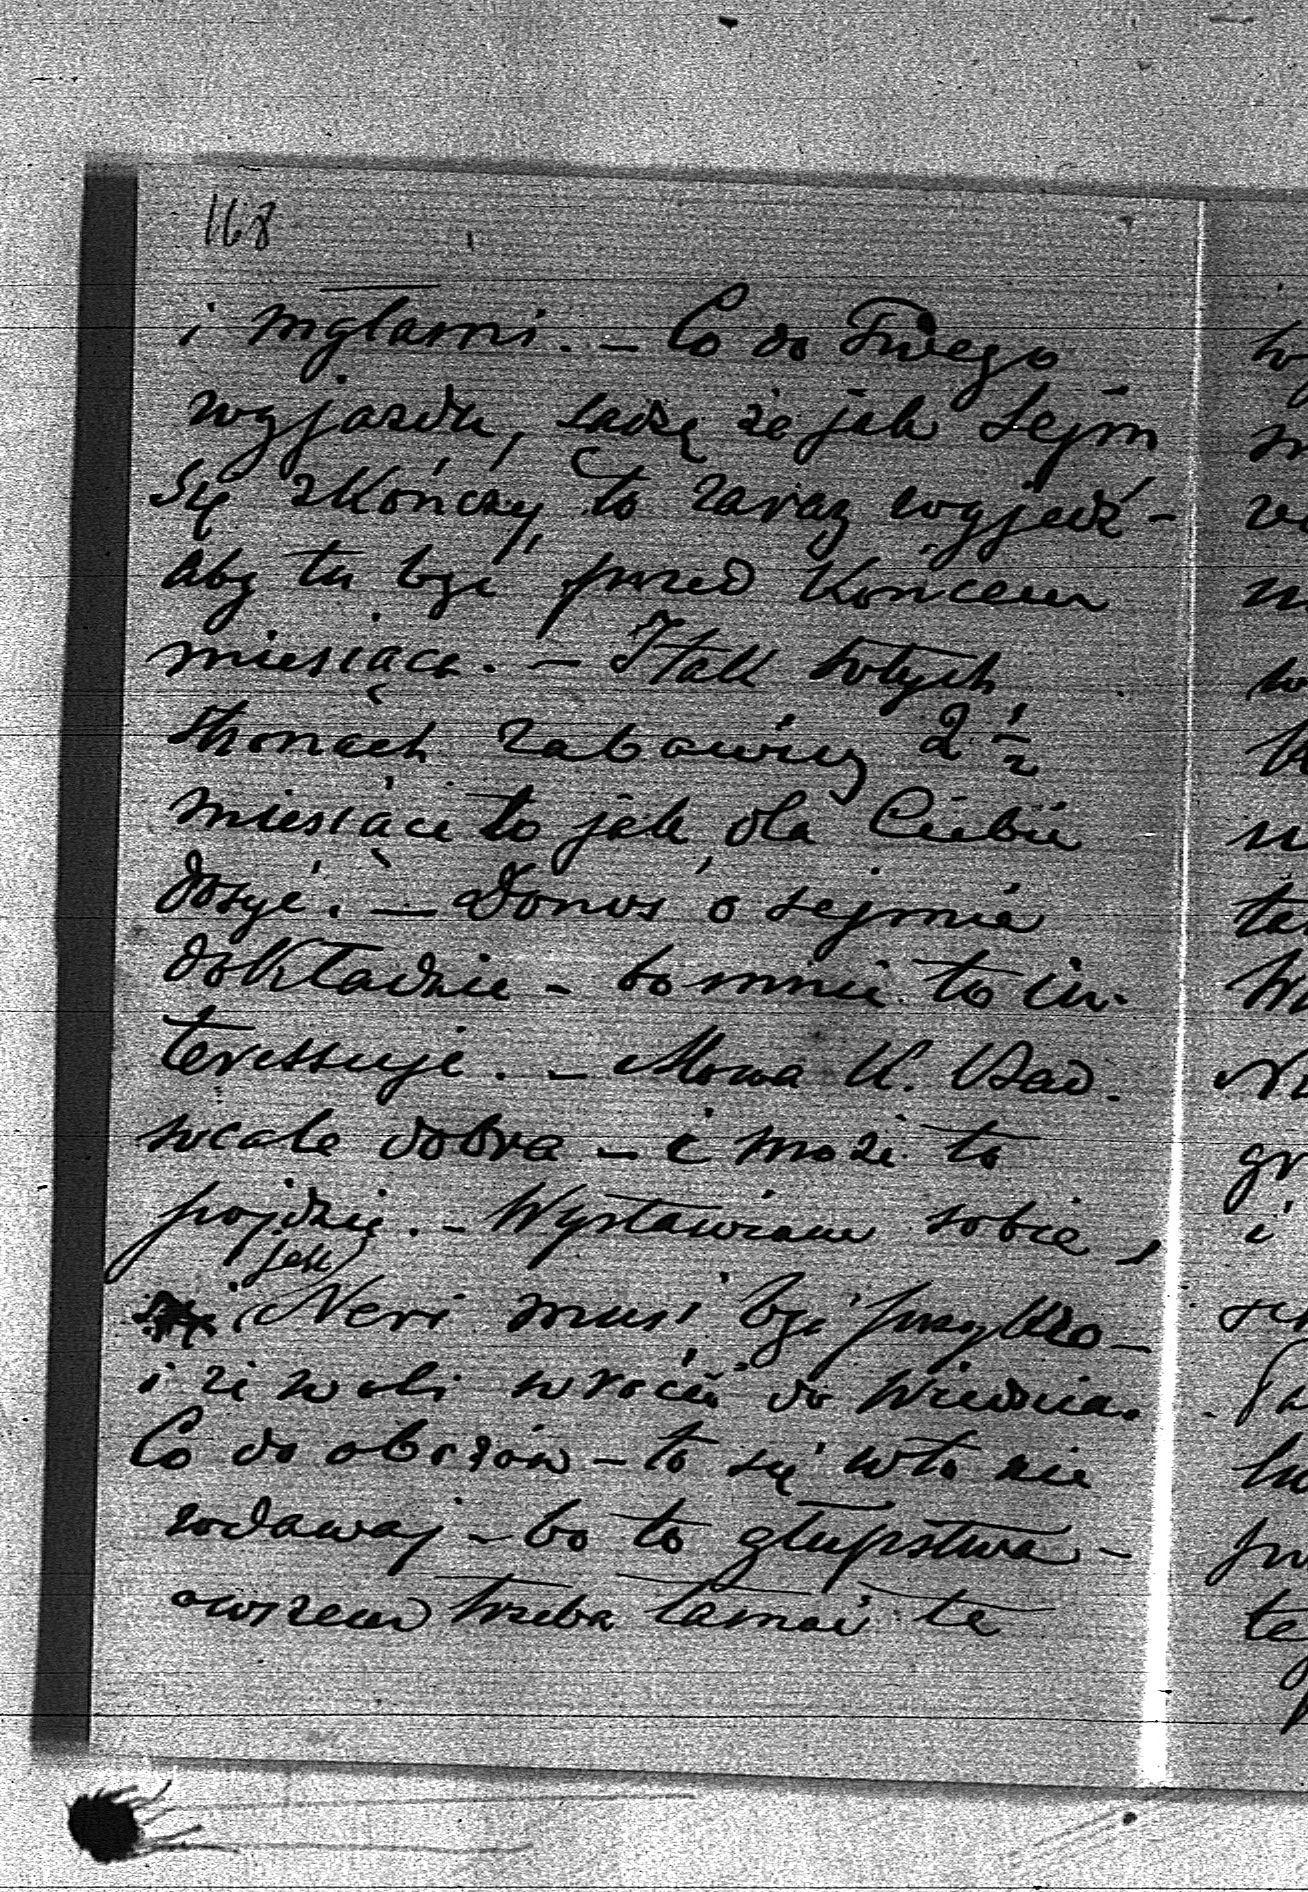 168
i mgłami. – Co do Twego
wyjazdu, sądzę że jak Sejm
się zkończy, to zaraz wyjedź –
aby tu być przed Końcem
miesiąca. – I tak w tych
stronach zabawisz 2 ½
miesiące to jak dla Ciebie
dosyć. – Donoś o sejmie
dokładnie – bo mnie to in-
teressuje. – Mowa K. Bad.
wcale dobra – i może to
pójdzie. – Wystawiam sobie,
jak
Neri musi być przykro –
i że woli wrócić do Wiednia.
Co do obozów – to się w to nie
wdawaj – bo to głupstwa –
owszem trzeba łamać te